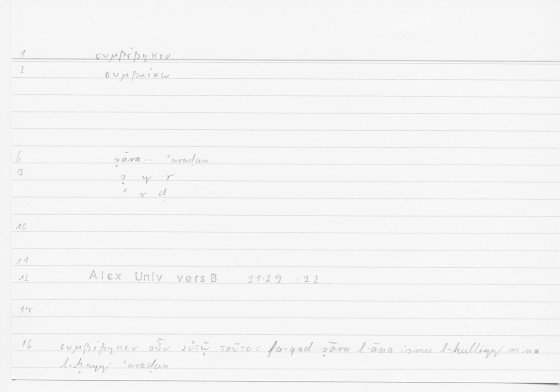 1 συμβέβηκεν
2 συμβαίνω
6 ṣāra -- ʿaraḍan
7 ṣ y r
ʿ r ḍ
10
11
12 Alex Univ vers B 21.29 : 22
14
16 συμβέβηκεν οὖν αὐτῷ τοῦτο : fa-qad ṣāra l-āna ismu l-kulliyyi mina
l-ḥayyi ʿaraḍan